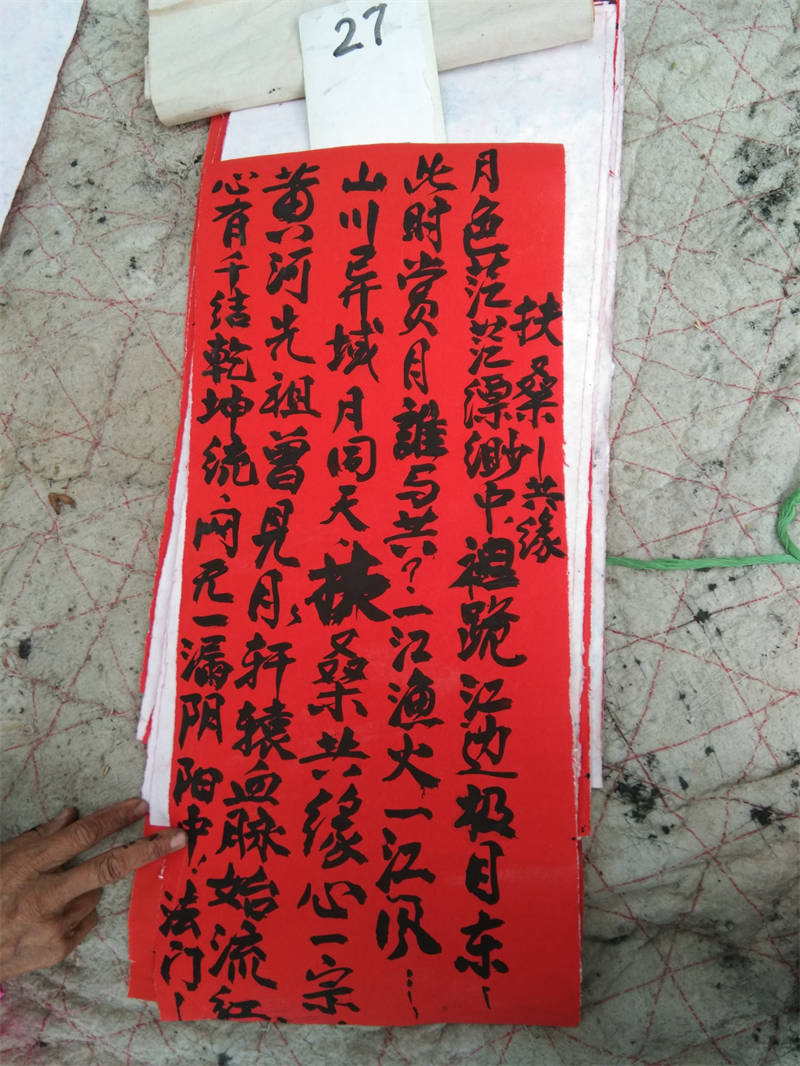 27
扶桑共缘
月色茫茫漂渺中祖跪江边极目东
此时赏月誰与共？一江渔火一江风
山川异域月同天、扶桑共缘心一宗
黄河先祖曾見月、轩辕血脉始流红
心有千结乾坤统、网无一漏阴阳中！法门